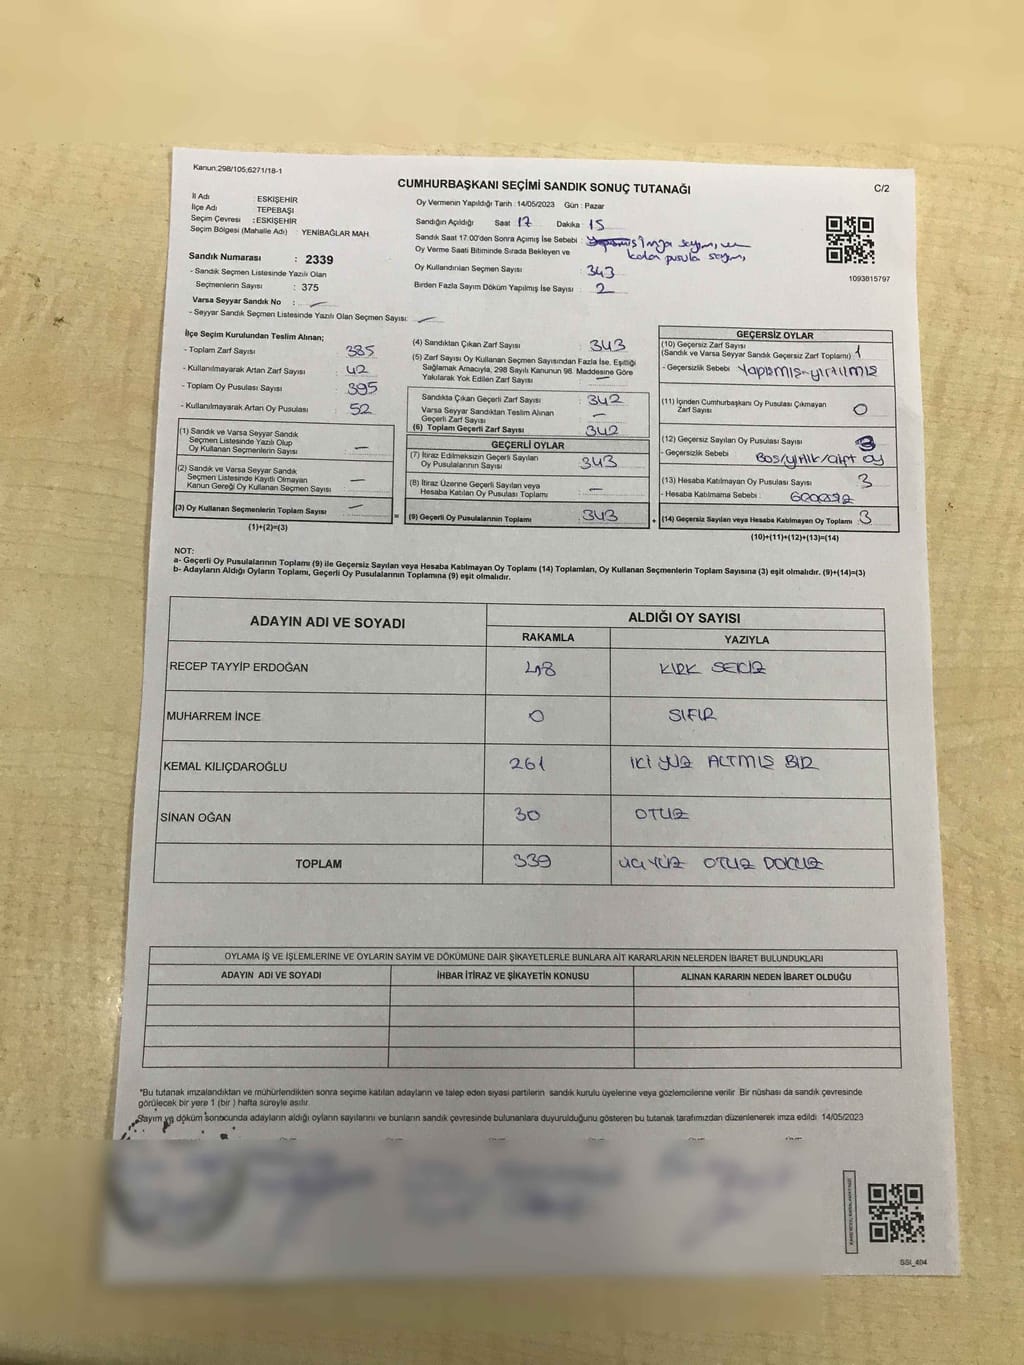 Kanun:298/105;6271/18-1
CUMHURBAŞKANI SEÇİMİ SANDIK SONUÇ TUTANAĞI
C/2
İl Adı : ESKİŞEHİR
İlçe Adı : TEPEBAŞI
Seçim Çevresi : ESKİŞEHİR
Seçim Bölgesi (Mahalle Adı) : YENİBAĞLAR MAH.
Sandık Numarası : 2339
- Sandık Seçmen Listesinde Yazılı Olan
Seçmenlerin Sayısı : 375
Varsa Seyyar Sandık No : —
- Seyyar Sandık Seçmen Listesinde Yazılı Olan Seçmen Sayısı: —
Oy Vermenin Yapıldığı Tarih : 14/05/2023 Gün : Pazar
Sandığın Açıldığı Saat 17 Dakika 15
Sandık Saat 17:00'den Sonra Açılmış İse Sebebi : İmza sayımı, ve
kalan pusula sayımı,
Oy Verme Saati Bitiminde Sırada Bekleyen ve
Oy Kullandırılan Seçmen Sayısı : 343
Birden Fazla Sayım Döküm Yapılmış İse Sayısı : 2
1093815797
İlçe Seçim Kurulundan Teslim Alınan;
- Toplam Zarf Sayısı 385
- Kullanılmayarak Artan Zarf Sayısı : 42
- Toplam Oy Pusulası Sayısı 395
- Kullanılmayarak Artan Oy Pusulası 52
(1) Sandık ve Varsa Seyyar Sandık
Seçmen Listesinde Yazılı Olup
Oy Kullanan Seçmenlerin Sayısı —
(2) Sandık ve Varsa Seyyar Sandık
Seçmen Listesinde Kayıtlı Olmayan
Kanun Gereği Oy Kullanan Seçmen Sayısı —
(3) Oy Kullanan Seçmenlerin Toplam Sayısı —
(1)+(2)=(3)
(4) Sandıktan Çıkan Zarf Sayısı : 343
(5) Zarf Sayısı Oy Kullanan Seçmen Sayısından Fazla İse, Eşitliği
Sağlamak Amacıyla, 298 Sayılı Kanunun 98. Maddesine Göre
Yakılarak Yok Edilen Zarf Sayısı : —
Sandıkta Çıkan Geçerli Zarf Sayısı : 342
Varsa Seyyar Sandıktan Teslim Alınan
Geçerli Zarf Sayısı : —
(6) Toplam Geçerli Zarf Sayısı : 342
GEÇERLİ OYLAR
(7) İtiraz Edilmeksizin Geçerli Sayılan
Oy Pusulalarının Sayısı : 343
(8) İtiraz Üzerine Geçerli Sayılan veya
Hesaba Katılan Oy Pusulası Toplamı : —
= (9) Geçerli Oy Pusulalarının Toplamı : 343
GEÇERSİZ OYLAR
(10) Geçersiz Zarf Sayısı
(Sandık ve Varsa Seyyar Sandık Geçersiz Zarf Toplamı) : 1
- Geçersizlik Sebebi : Yapışmış-yırtılmış
(11) İçinden Cumhurbaşkanı Oy Pusulası Çıkmayan
Zarf Sayısı 0
(12) Geçersiz Sayılan Oy Pusulası Sayısı : 3
- Geçersizlik Sebebi : Boş/yırtık/çift oy
(13) Hesaba Katılmayan Oy Pusulası Sayısı : 3
- Hesaba Katılmama Sebebi :
+ (14) Geçersiz Sayılan veya Hesaba Katılmayan Oy Toplamı : 3
(10)+(11)+(12)+(13)=(14)
NOT:
a- Geçerli Oy Pusulalarının Toplamı (9) ile Geçersiz Sayılan veya Hesaba Katılmayan Oy Toplamı (14) Toplamları, Oy Kullanan Seçmenlerin Toplam Sayısına (3) eşit olmalıdır. (9)+(14)=(3)
b- Adayların Aldığı Oyların Toplamı, Geçerli Oy Pusulalarının Toplamına (9) eşit olmalıdır.
ADAYIN ADI VE SOYADI
ALDIĞI OY SAYISI
RAKAMLA YAZIYLA
RECEP TAYYİP ERDOĞAN 48 KIRK SEKİZ
MUHARREM İNCE 0 SIFIR
KEMAL KILIÇDAROĞLU 261 İKİ YÜZ ALTMIŞ BİR
SİNAN OĞAN 30 OTUZ
TOPLAM 339 ÜÇ YÜZ OTUZ DOKUZ
OYLAMA İŞ VE İŞLEMLERİNE VE OYLARIN SAYIM VE DÖKÜMÜNE DAİR ŞİKAYETLERLE BUNLARA AİT KARARLARIN NELERDEN İBARET BULUNDUKLARI
ADAYIN ADI VE SOYADI İHBAR İTİRAZ VE ŞİKAYETİN KONUSU ALINAN KARARIN NEDEN İBARET OLDUĞU
*Bu tutanak imzalandıktan ve mühürlendikten sonra seçime katılan adayların ve talep eden siyasi partilerin sandık kurulu üyelerine veya gözlemcilerine verilir. Bir nüshası da sandık çevresinde
görülecek bir yere 1 (bir) hafta süreyle asılır.
Sayım ve döküm sonucunda adayların aldığı oyların sayılarını ve bunların sandık çevresinde bulunanlara duyurulduğunu gösteren bu tutanak tarafımızdan düzenlenerek imza edildi. 14/05/2023
SSI_404